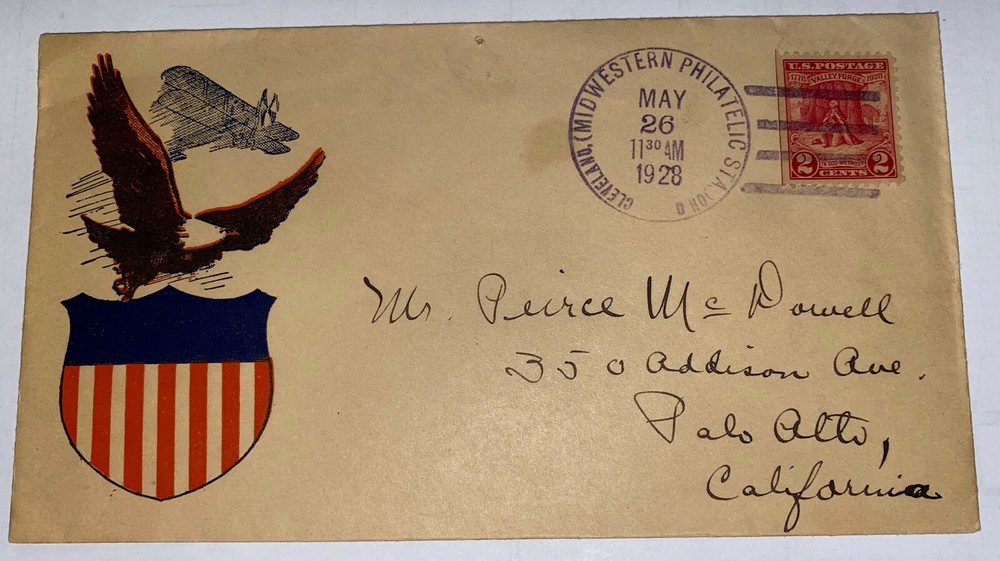 CLEVELAND, (MIDWESTERN PHILATELIC STA.) OHIO
MAY
26
11 30 AM
1928
U.S. POSTAGE
1778 VALLEY FORGE 1928
IN GOD WE TRUST
2 CENTS 2
Mr. Peirce McDowell
350 Addison Ave.
Palo Alto,
California